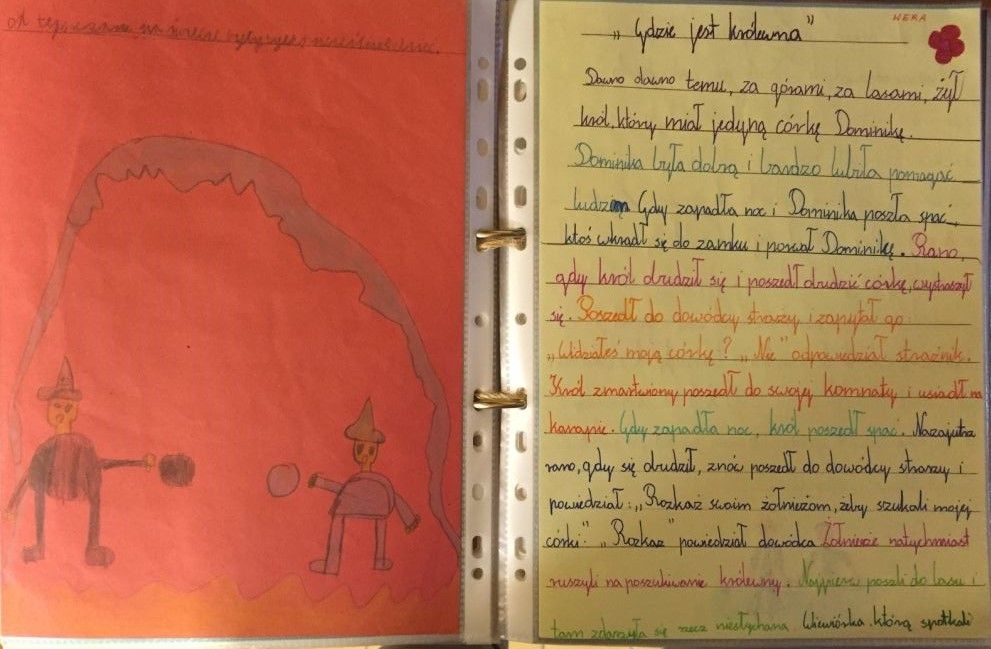 od tej pory na świecie były tylko
WERA
„Gdzie jest królewna"
Dawno dawno temu, za górami, za lasami, żył
król, który miał jedyną córkę Dominikę.
Dominika była dobrą i bardzo lubiła pomagać
ludziom Gdy zapadła noc i Dominika poszła spać,
ktoś wkradł się do zamku i porwał Dominikę. Rano,
gdy król obudził się i poszedł obudzić córkę, wystraszył
się. Poszedł do dowódcy straży i zapytał go:
„Widziałeś moją córkę? „Nie" odpowiedział strażnik.
Król zmartwiony poszedł do swojej komnaty i usiadł na
kanapie. Gdy zapadła noc, król poszedł spać. Nazajutrz
rano, gdy się obudził, znów poszedł do dowódcy straży i
powiedział: „Rozkaż swoim żołnieżom, żeby szukali mojej
córki." „Rozkaz" powiedział dowódca Żołnieże natychmiast
ruszyli na poszukiwanie królewny. Najpierw poszli do lasu i
tam zdarzyła się rzecz niesłychana. Wiewiórka, którą spotkali